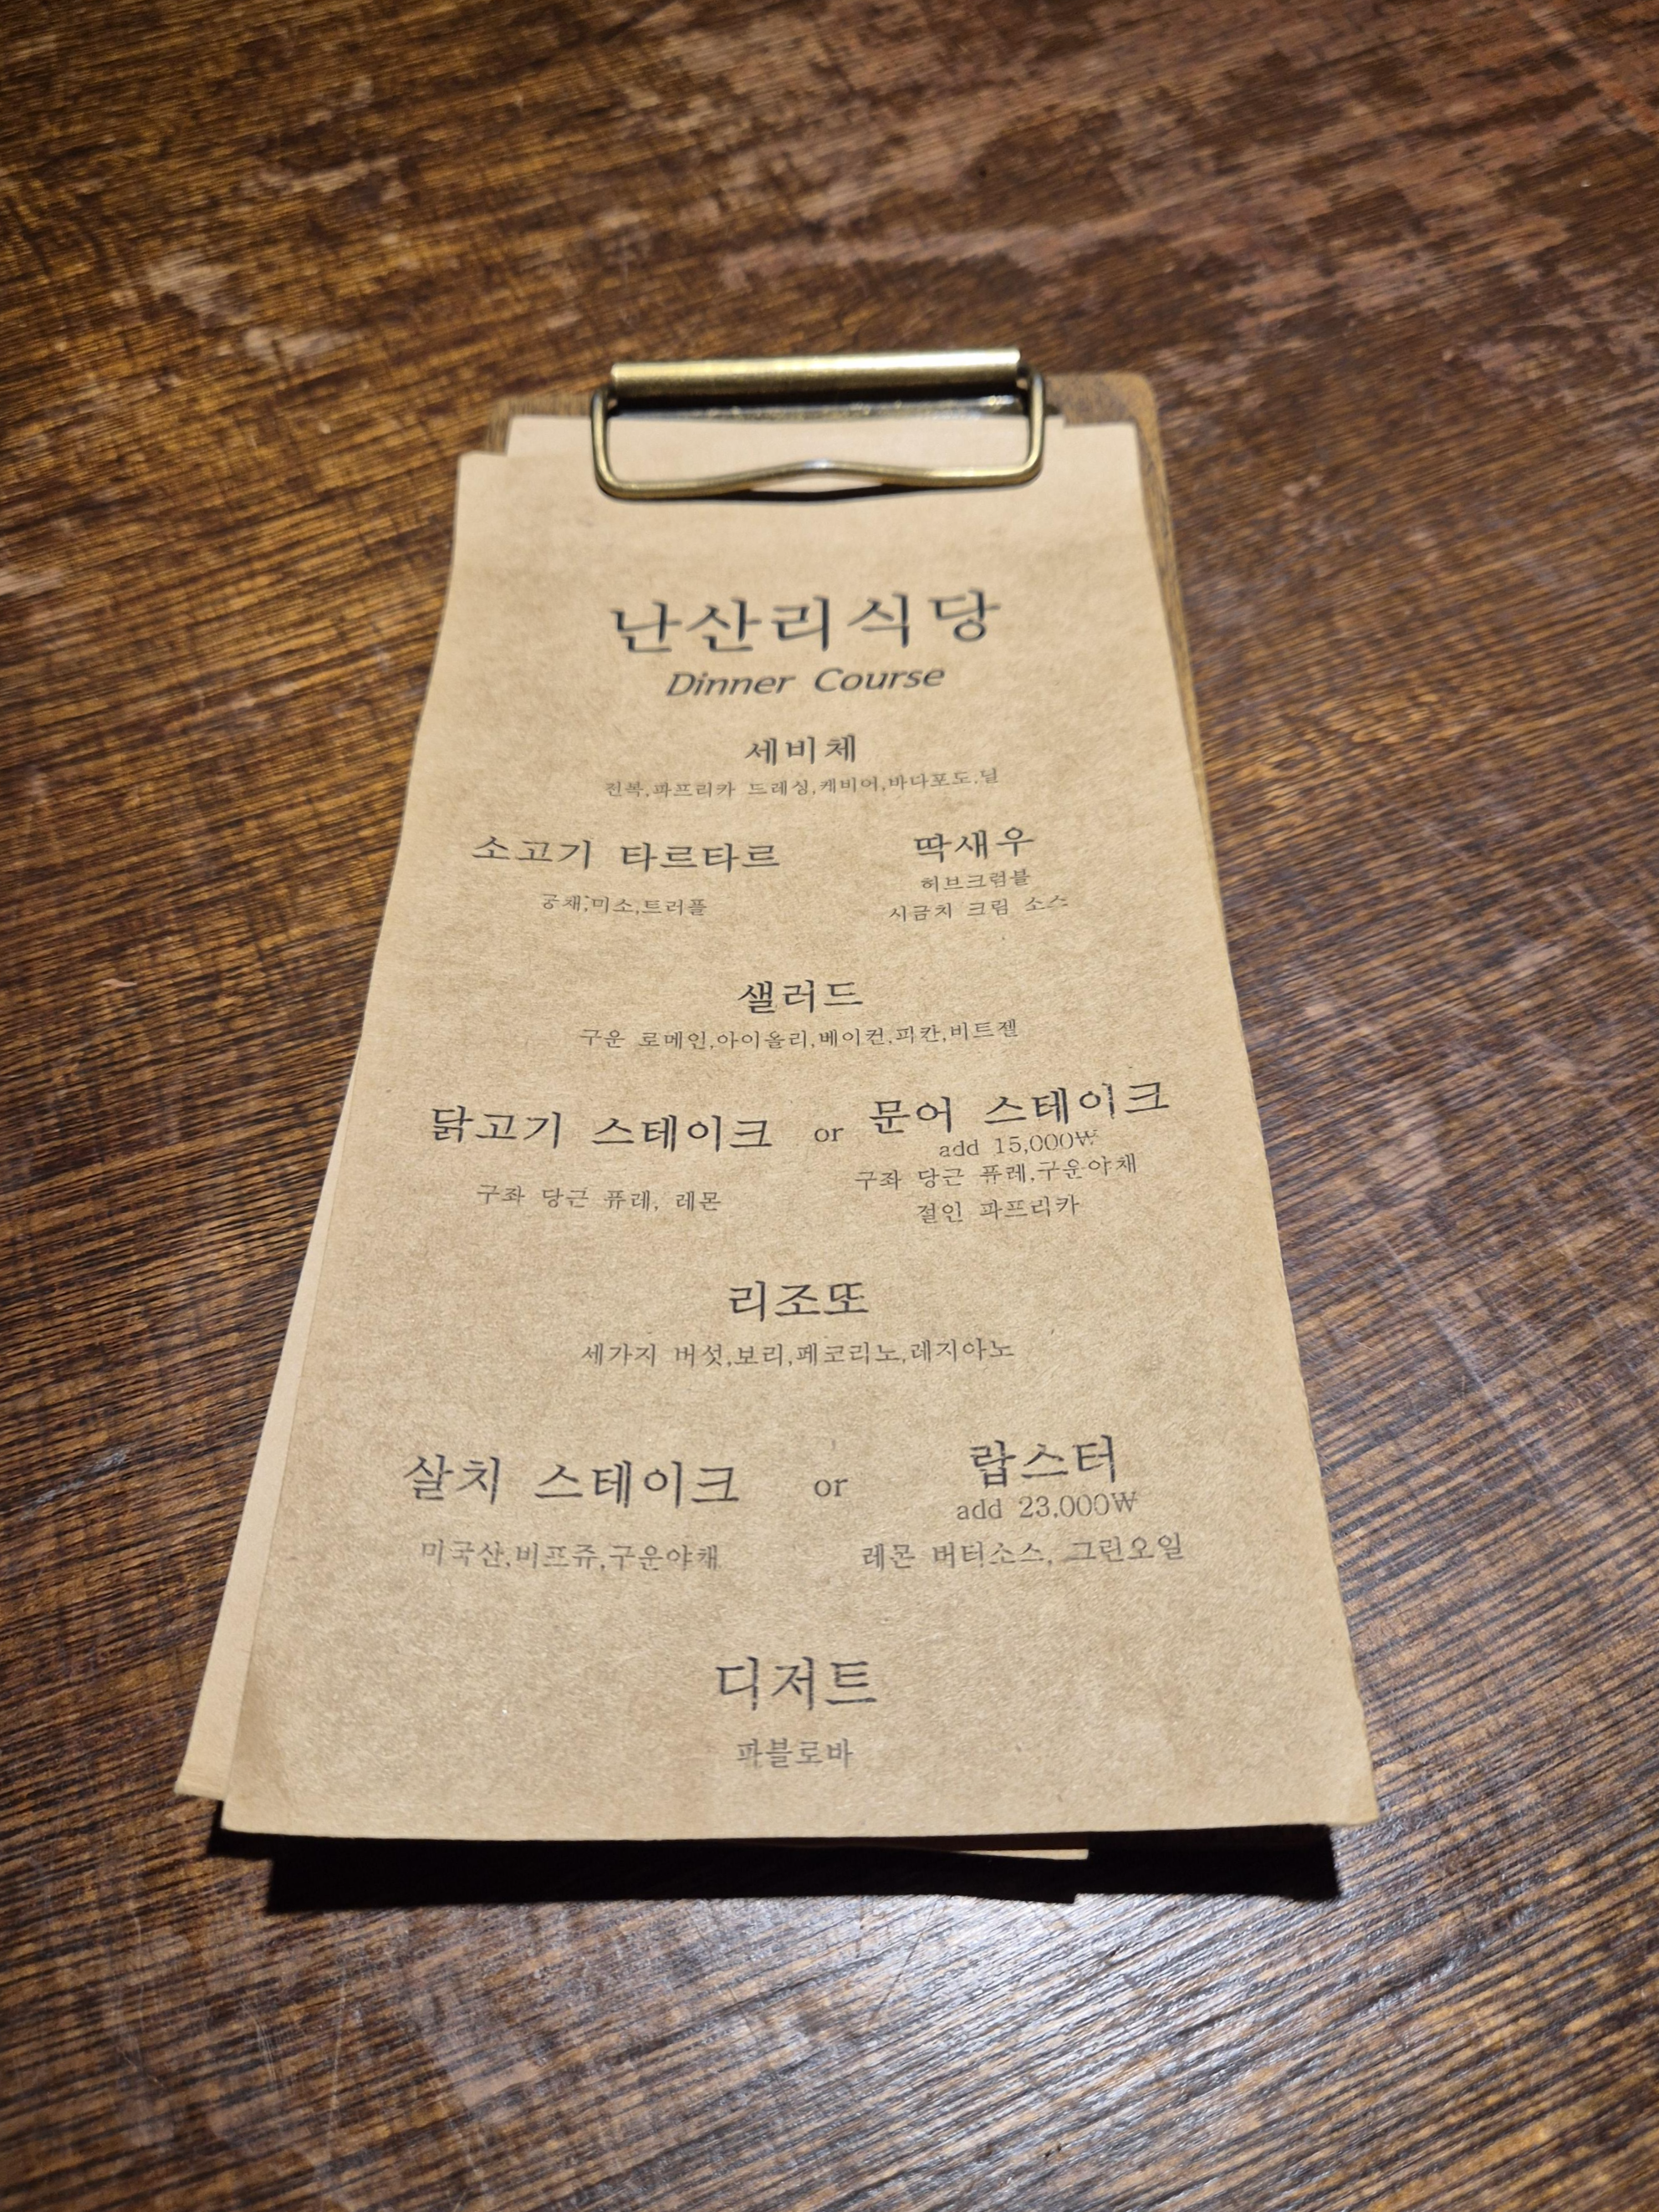 난산리식당
Dinner Course
세비체
전복,파프리카 드레싱,캐비어,바다포도,딜
소고기 타르타르
궁채,미소,트러플
딱새우
허브크럼블
시금치 크림 소스
샐러드
구운 로메인,아이올리,베이컨,피칸,비트젤
닭고기 스테이크
구좌 당근 퓨레, 레몬
or
문어 스테이크
add 15,000₩
구좌 당근 퓨레,구운야채
절인 파프리카
리조또
세가지 버섯,보리,페코리노,레지아노
살치 스테이크
미국산,비프쥬,구운야채
or
랍스터
add 23,000₩
레몬 버터소스, 그린오일
디저트
파블로바